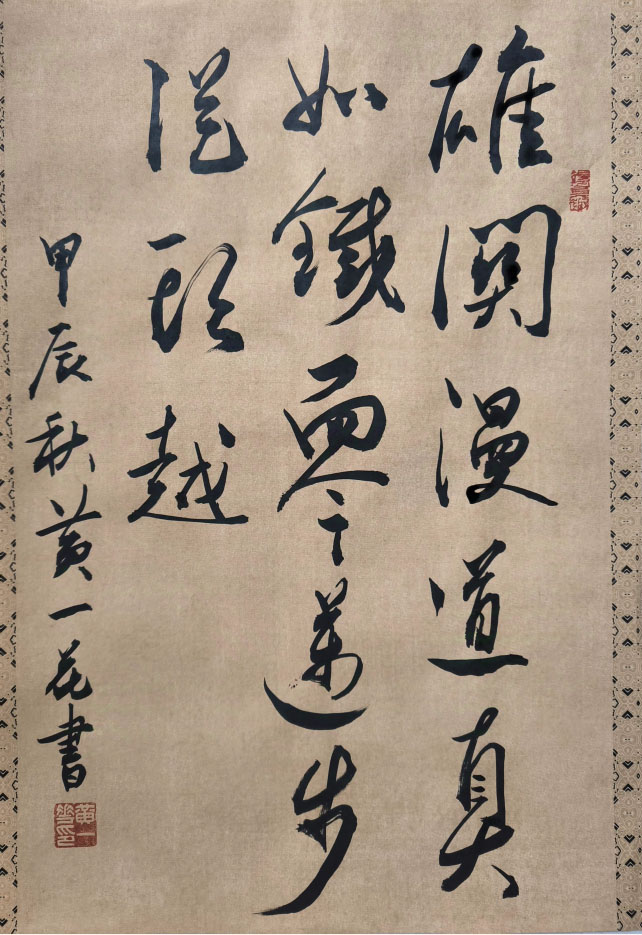 雄關漫道真
如鐵而今邁步
從頭越
甲辰秋黄一花書